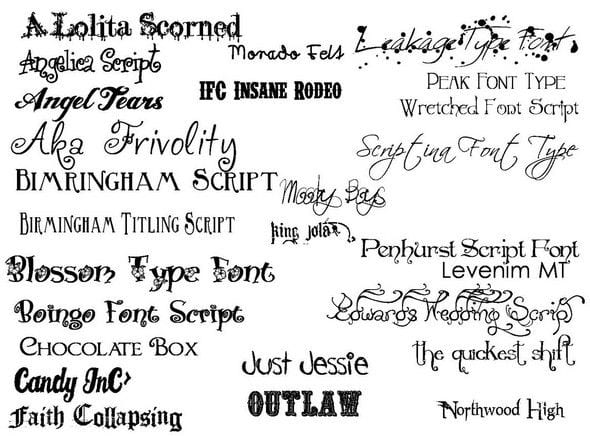 A Lolita Scorned
Angelica Script
Angel Tears
Aka Frivolity
Bimringham Script
Birmingham Titling Script
Blossom Type Font
Boingo Font Script
Chocolate Box
Candy Inc
Faith Collapsing
Morado Felt
IFC Insane Rodeo
Moody Boys
king jola
Just Jessie
OUTLAW
Leakage Type Font
Peak Font Type
Wretched Font Script
Scriptina Font Type
Penhurst Script Font
Levenim MT
Edwards Wedding Script
the quickest shift
Northwood High